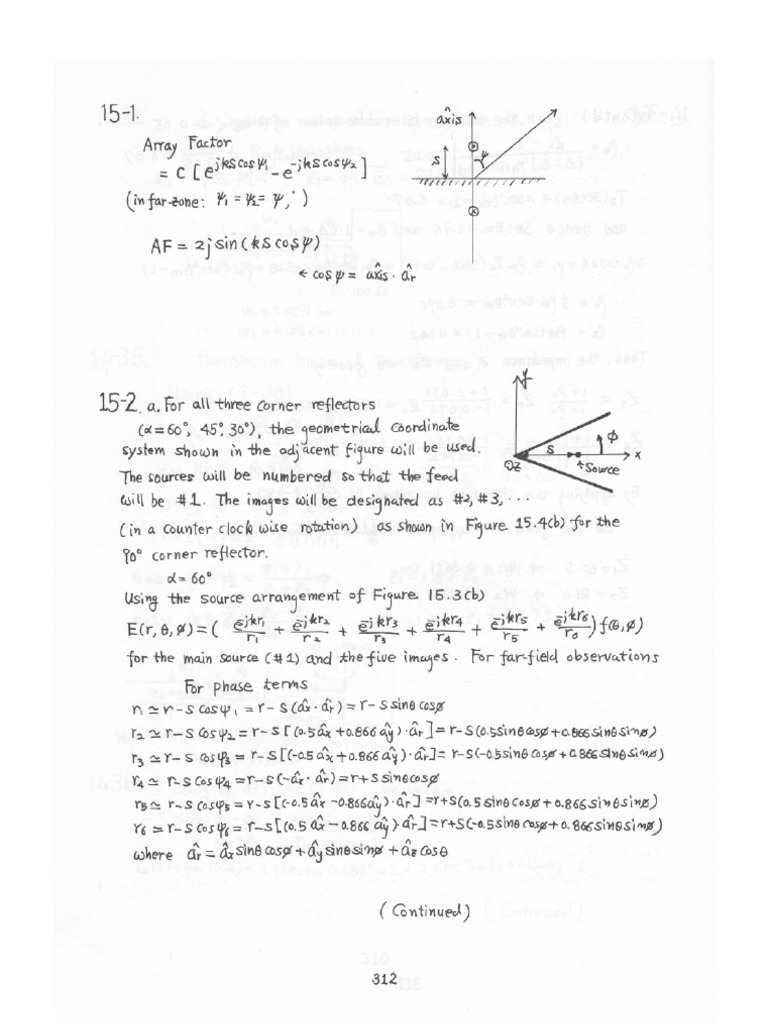 15-1.
Array Factor
= C [e^{jkscosψ₁} - e^{-jkscosψ₂}]
(in far-zone: ψ₁ = ψ₂ = ψ, )
AF = 2j sin(ks cosψ)
← cosψ = axîs · âr
axîs
s
ψ
15-2. a. For all three corner reflectors
(α=60°, 45°, 30°), the geometrical coordinate
system shown in the adjacent figure will be used.
The sources will be numbered so that the feed
will be #1. The images will be designated as #2, #3, ...
(in a counter clock wise rotation) as shown in Figure 15.4(b) for the
90° corner reflector.
y
ϕ
s
x
z
Source
α=60°
Using the source arrangement of Figure 15.3(b)
E(r, θ, ø) = ( e^{-jkr₁}/r₁ + e^{-jkr₂}/r₂ + e^{-jkr₃}/r₃ + e^{-jkr₄}/r₄ + e^{-jkr₅}/r₅ + e^{-jkr₆}/r₆ ) f(θ,ø)
for the main source (#1) and the five images. For far-field observations
For phase terms
r₁ ≃ r - s cosψ₁ = r - s(âx · âr) = r - s sinθ cosø
r₂ ≃ r - s cosψ₂ = r - s[(0.5 âx + 0.866 ây) · âr] = r - s(0.5 sinθ cosø + 0.866 sinθ sinø)
r₃ ≃ r - s cosψ₃ = r - s[(-0.5 âx + 0.866 ây) · âr] = r - s(-0.5 sinθ cosø + 0.866 sinθ sinø)
r₄ ≃ r - s cosψ₄ = r - s(-âx · âr) = r + s sinθ cosø
r₅ ≃ r - s cosψ₅ = r - s[(-0.5 âx - 0.866 ây) · âr] = r + s(0.5 sinθ cosø + 0.866 sinθ sinø)
r₆ ≃ r - s cosψ₆ = r - s[(0.5 âx - 0.866 ây) · âr] = r + s(-0.5 sinθ cosø + 0.866 sinθ sinø)
where âr = âx sinθ cosø + ây sinθ sinø + âz cosθ
(Continued)
312